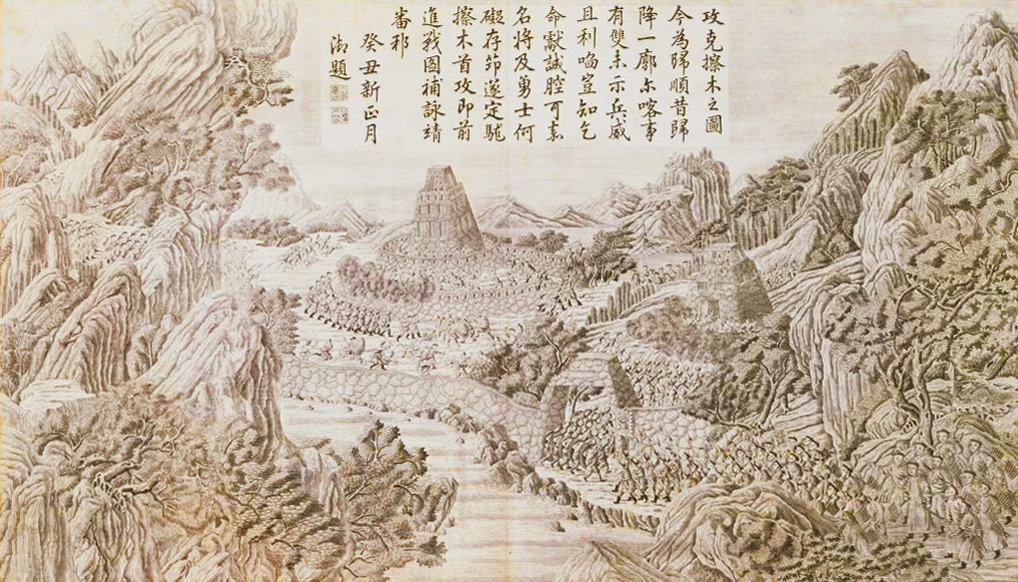 攻克擦木之圖
今為歸順昔歸
降一廓尔喀事
有雙未示兵威
且利啗豈知乞
命獻誠腔可
名將及勇士何
礙存節遂定
擦木首攻即前
進戰圖補詠靖
番邪
癸丑新正月
御題